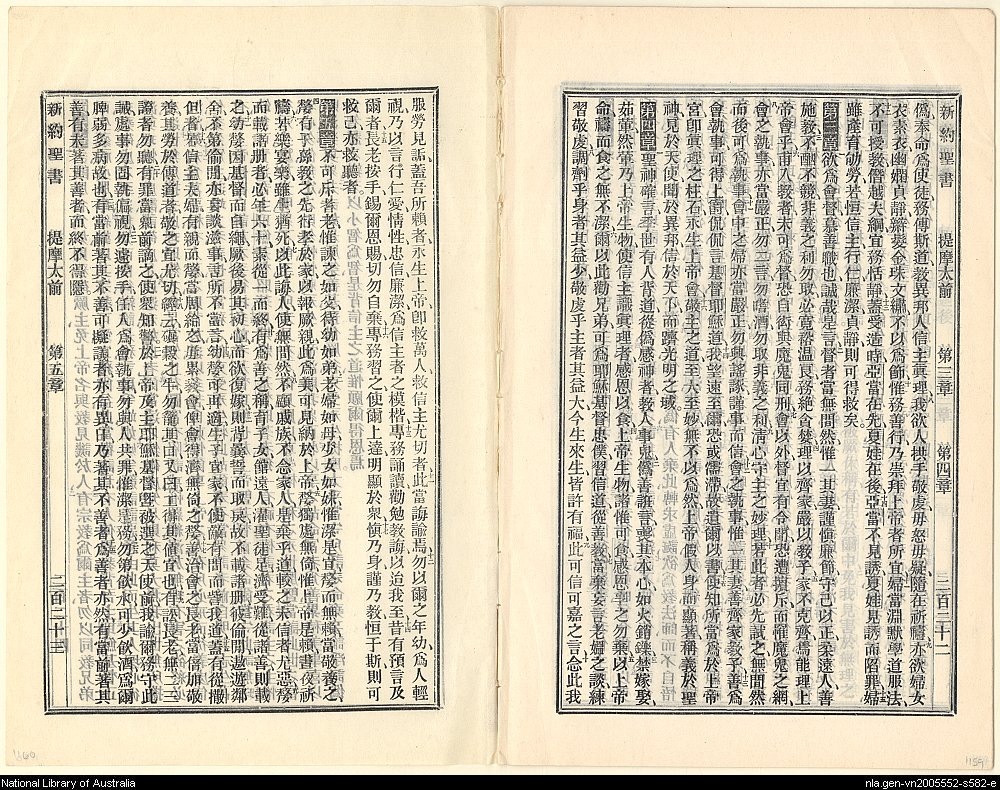 新約聖書 提摩太前 第三章 第四章 二百二十二
爲奉命爲使徒務傅斯道教異邦人信主眞理我欲人拱手敬虔毋怒毋疑隨在祈禱亦欲婦女
衣素衣幽嫺貞靜辮髮金珠文繡不以爲飾惟務善行乃崇拜上帝者所宜婦當淵默學道服法
不可授教僭越夫綱宜務恬靜蓋受造時亞當在先夏娃在後亞當不見誘夏娃見誘而陷罪婦
雖產育劬勞若恒信主行仁廉潔貞靜則可得救矣
第三章欲爲會督慕善職也誠哉是言督者當無間然惟一其妻謹愼廉節守己以正柔遠人善
施教不酗不競非義之利勿取必寬裕溫良務絕貪婪理以齊家嚴以教子家不克齊焉能理上
帝會乎甫入教者未可爲會督恐自衒與魔鬼同刑會以外督宜有令聞恐遭擯斥而罹魔鬼之網
會之執事亦當嚴正勿二言勿嗜酒勿取非義之利清心守主之妙理若此者必先試之無間然
而後可爲執事會中之婦亦當嚴正勿興謠諑謹事而信會之執事惟一其妻善齊家教子善爲
會執事可得上爵侃侃言基督耶穌道我望速至爾恐或濡滯故遺爾以書使知所當爲於上帝
宮卽眞理之柱石永生上帝之會敬主之道至大至妙無不以爲然上帝假人身而顯著稱義於聖
神見於天使聞於異邦信於天下而躋光明之域
第四章聖神確言季世有人背道從僞感神者教人事鬼僞善誑言喪其本心如火銷鑠禁嫁娶
茹葷然葷乃上帝生物使信主識眞理者感恩以食上帝生物諸惟可食感恩享之勿棄以上帝
命禱而食之無不潔爾以此勸兄弟可爲耶穌基督忠僕習信道從善教當棄妄言老婦之談練
習敬虔調劑乎身者其益少敬虔乎主者其益大今生來生皆許有福此可信可嘉之言念此我
服勞見詬蓋吾所賴者永生上帝卽救萬人救信主尤切者此當誨諭焉勿以爾之年幼爲人輕
視乃以言行仁愛情性忠信廉潔爲信主者之模楷專務誦讀勸勉教誨以迨我至昔有預言及
爾者長老按手錫爾恩賜切勿自棄專務習之使爾上達明顯於衆愼乃身謹乃教恒于斯則可
救己亦救聽者
第五章不可斥耆老惟諫之如父待幼如弟老婦如母少女如妹惟潔是宜嫠而無賴當敬養之
嫠有子孫教之先行孝於家以報厥親此爲美可見納於上帝嫠獨處無倚惟上帝是賴晝夜祈
禱若樂宴樂雖生猶死以此誨人使無間然不顧戚族不念家人是棄乎道較之未信者尤惡嫠
而載諸册者必年六十素從一而終有爲善之稱育子女館遠人濯聖徒足濟受難從諸善則載
之幼嫠因基督而自繩厥後易其初心而欲復嫁則背義誓而取戾故不載諸册彼偷閒遨遊鄰
舍不第偷閒亦妄談滋事言所不當言幼嫠可再適生子宜家不使敵有間而訾我道蓋有從撒
但者矣信主夫婦有親屬而嫠當周給之毋累會會俾會得濟無倚之嫠善治會之長老當倍加敬
養其勞於傳道者敬之宜尤切經云碾穀之牛勿籠其口又曰工得其値宜也有訟長老無二三
證者勿聽有罪當衆前謫之使衆知警於上帝及主耶穌基督曁被選之天使前我諭爾務守此
誡處事勿固執偏視勿遽按手任人爲會執事勿與人共罪惟潔是務勿第飲水可少飲酒爲爾
脾弱多病故也有當前著其不善可擬議者亦有異日乃著其不善者爲善者亦然有當前著其
善有未著其善者而終不隱
新約聖書 提摩太前 第五章 二百二十三
National Library of Australia
nla.gen-vn2005552-s582-e